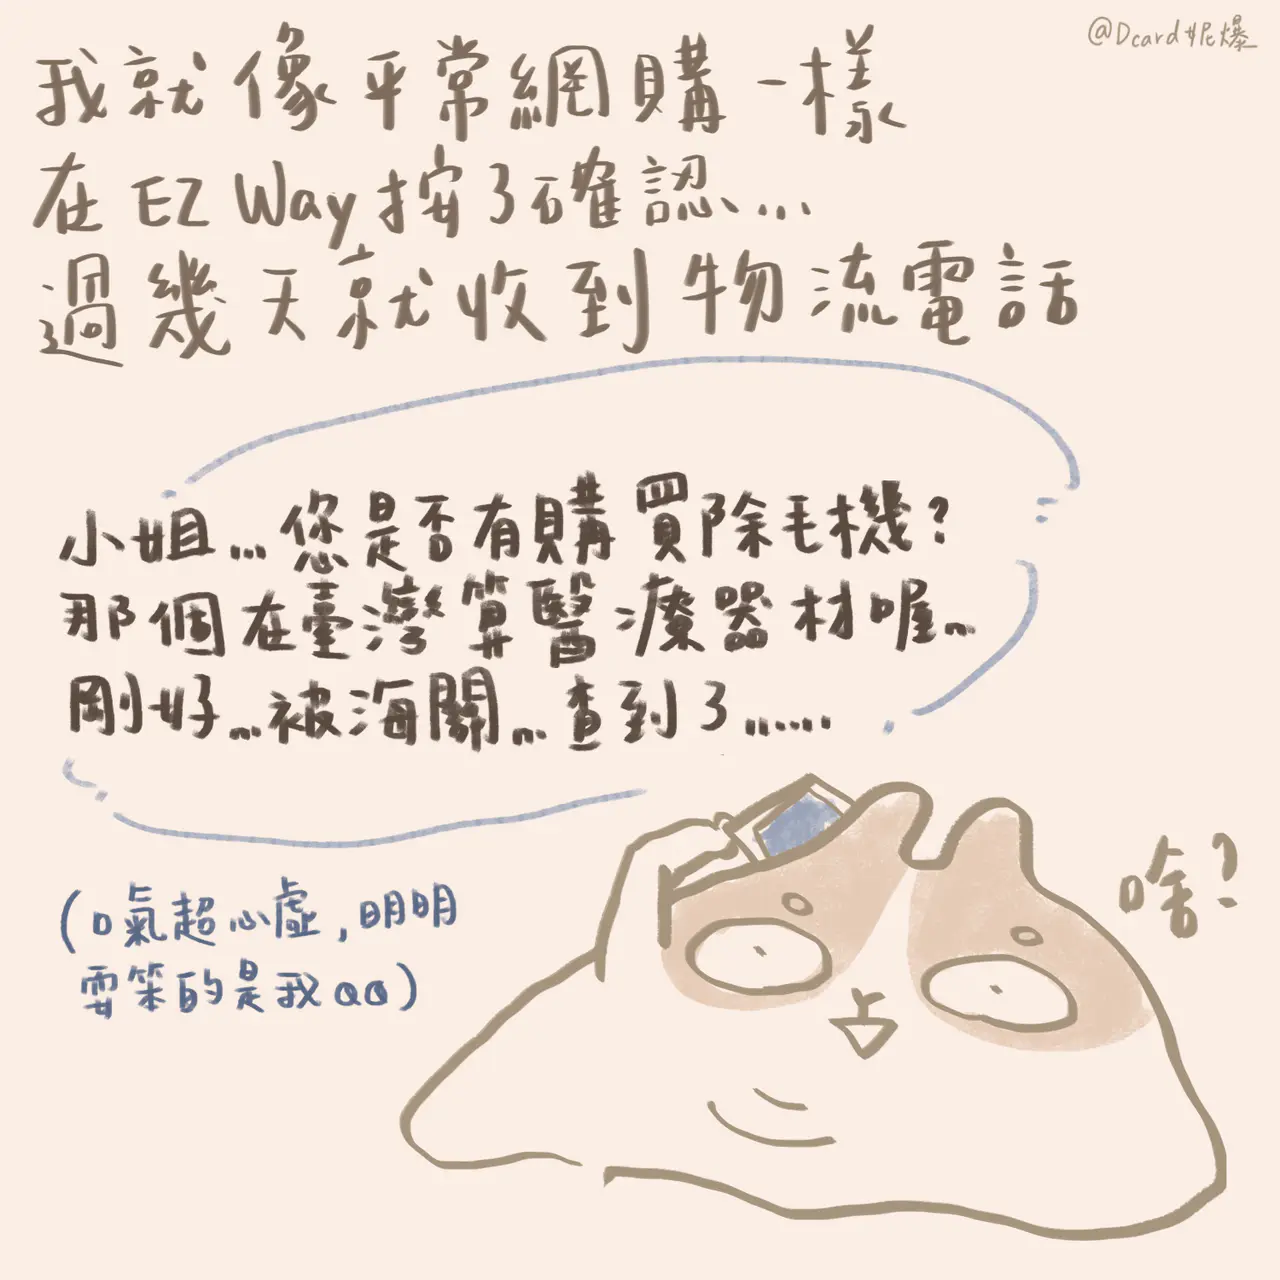 @Dcard妮爆
我就像平常網購一樣
在EZ Way按了確認...
過幾天就收到物流電話
小姐...您是否有購買除毛機?
那個在臺灣算醫療器材喔...
剛好...被海關...查到了......
(口氣超心虛,明明
耍笨的是我QQ)
啥?